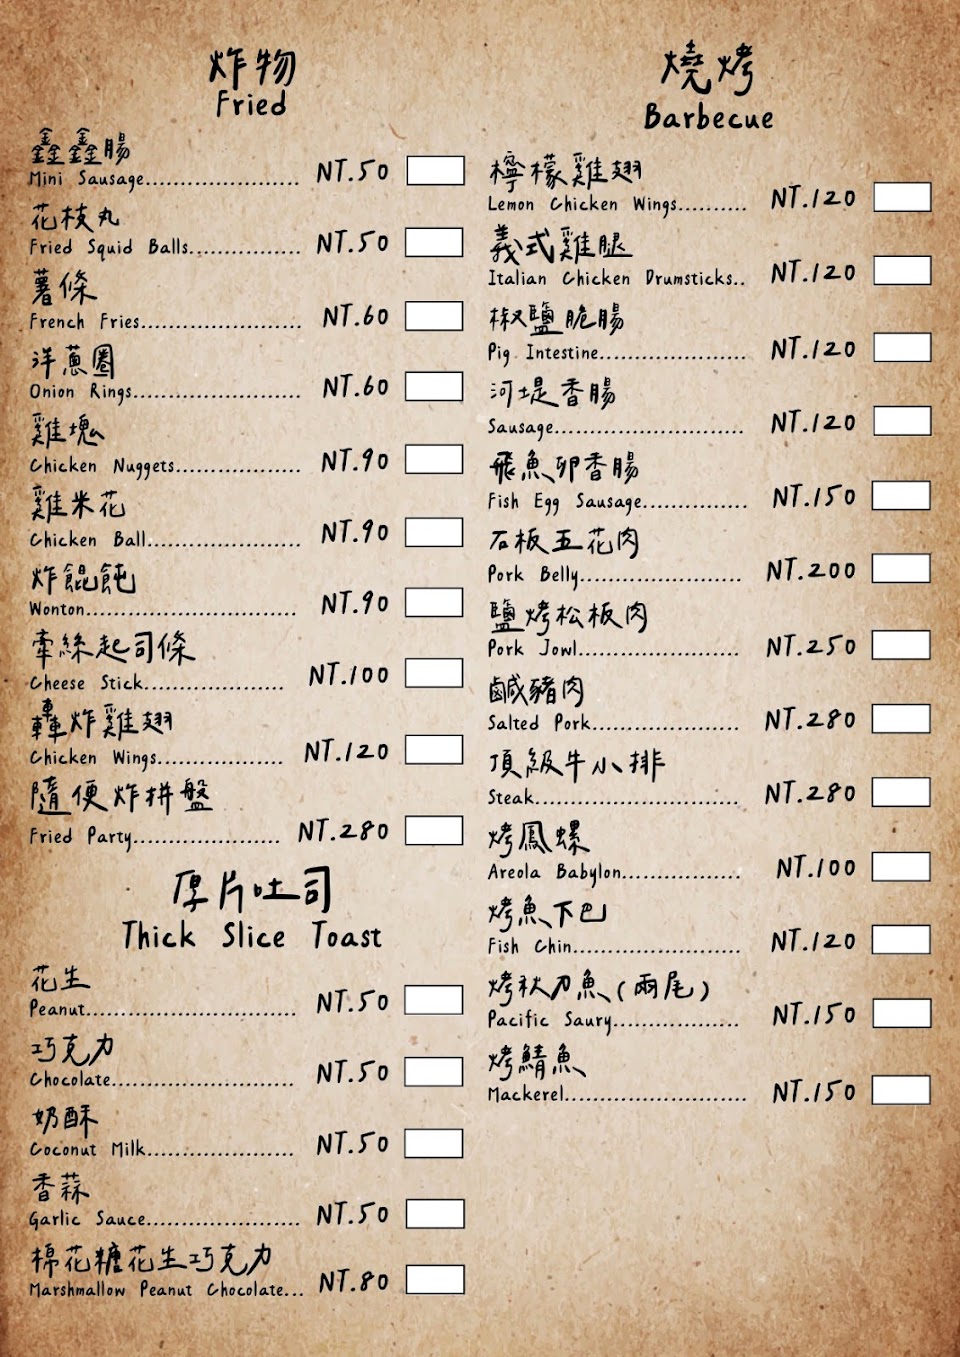 炸物
Fried
鑫鑫腸
Mini Sausage...................... NT.50
花枝丸
Fried Squid Balls................ NT.50
薯條
French Fries....................... NT.60
洋蔥圈
Onion Rings........................ NT.60
雞塊
Chicken Nuggets.................. NT.90
雞米花
Chicken Ball...................... NT.90
炸餛飩
Wonton.............................. NT.90
牽絲起司條
Cheese Stick.................... NT.100
轟炸雞翅
Chicken Wings.................. NT.120
隨便炸拼盤
Fried Party..................... NT.280
厚片吐司
Thick Slice Toast
花生
Peanut.............................. NT.50
巧克力
Chocolate.......................... NT.50
奶酥
Coconut Milk..................... NT.50
香蒜
Garlic Sauce...................... NT.50
棉花糖花生巧克力
Marshmallow Peanut Chocolate... NT.80
燒烤
Barbecue
檸檬雞翅
Lemon Chicken Wings.......... NT.120
義式雞腿
Italian Chicken Drumsticks.. NT.120
椒鹽脆腸
Pig Intestine..................... NT.120
河堤香腸
Sausage........................... NT.120
飛魚卵香腸
Fish Egg Sausage............... NT.150
石板五花肉
Pork Belly....................... NT.200
鹽烤松板肉
Pork Jowl....................... NT.250
鹹豬肉
Salted Pork..................... NT.280
頂級牛小排
Steak............................. NT.280
烤鳳螺
Areola Babylon................. NT.100
烤魚下巴
Fish Chin........................ NT.120
烤秋刀魚(兩尾)
Pacific Saury.................. NT.150
烤鯖魚
Mackerel.......................... NT.150